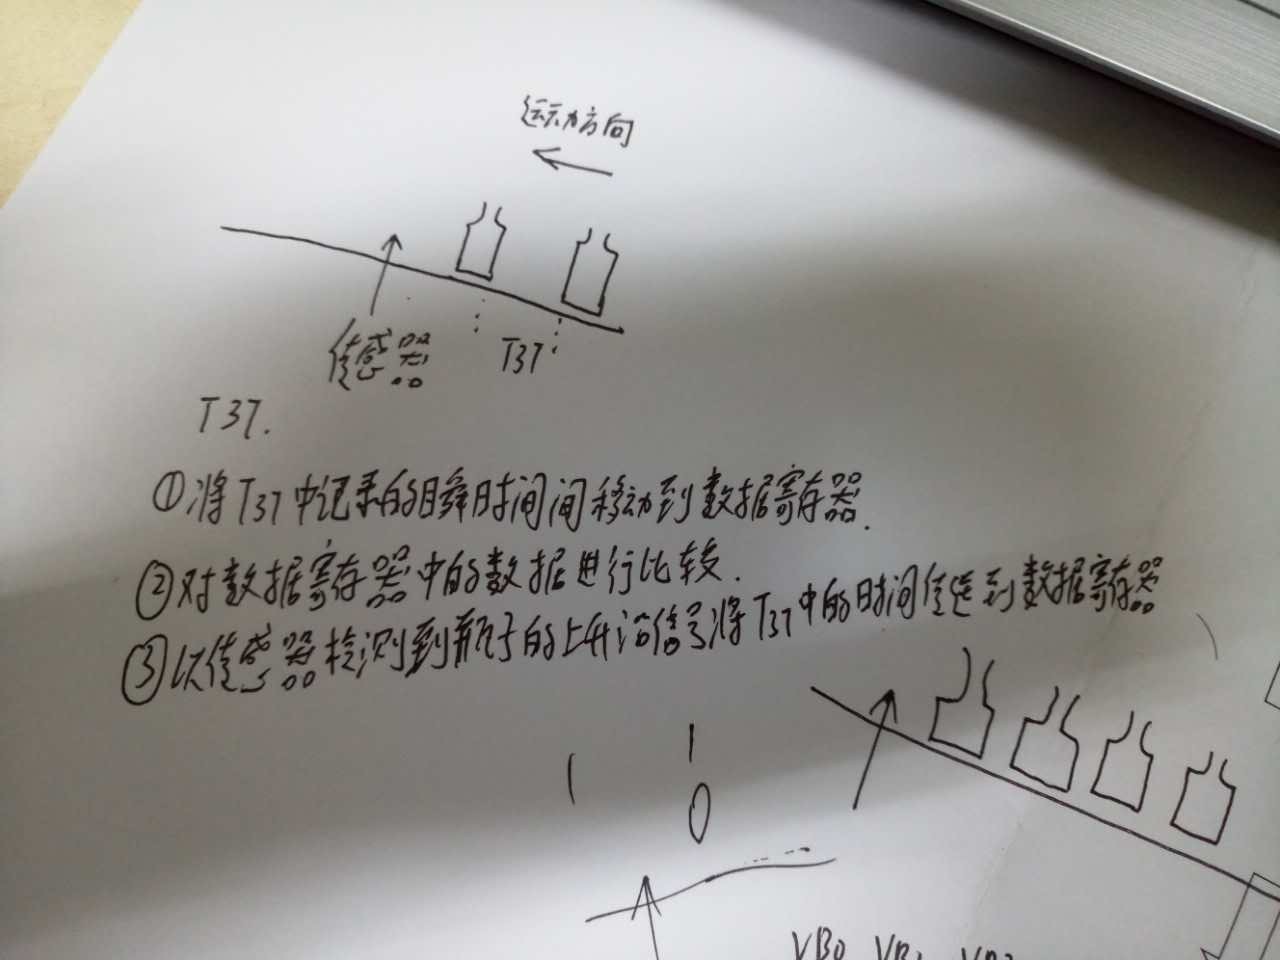 运动方向
传感器
T37
T37.
①将T37中记录的瞬时间间移动到数据寄存器.
②对数据寄存器中的数据进行比较.
③以传感器检测到瓶子的上升沿信号将T37中的时间传送到数据寄存器
1
1
0
VB0 VB1 VB2